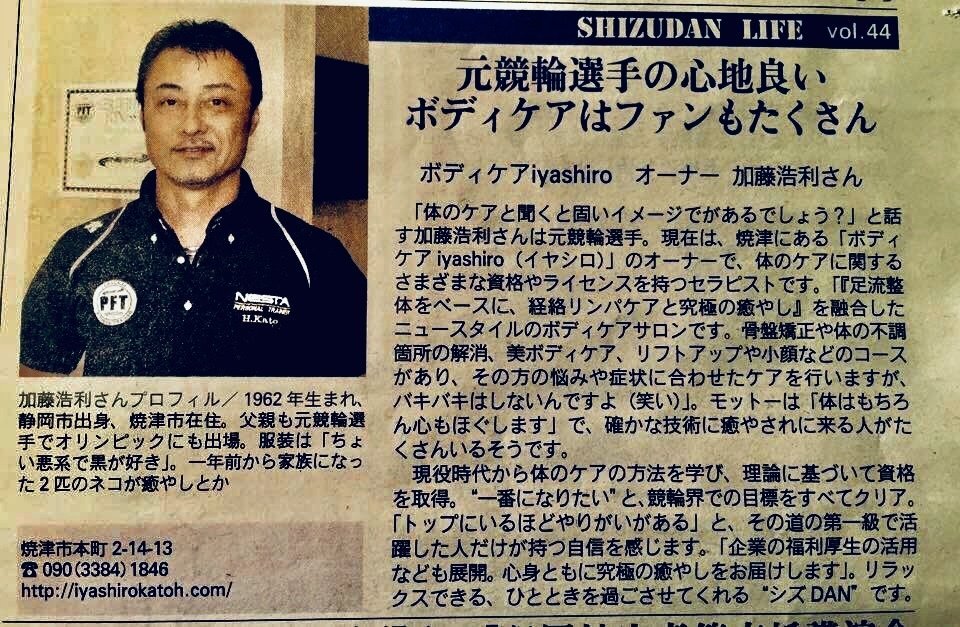 SHIZUDAN LIFE vol.44
元競輪選手の心地良い
ボディケアはファンもたくさん
ボディケアiyashiro オーナー 加藤浩利さん
「体のケアと聞くと固いイメージでがあるでしょう？」と話
す加藤浩利さんは元競輪選手。現在は、焼津にある「ボディ
ケア iyashiro（イヤシロ）」のオーナーで、体のケアに関する
さまざまな資格やライセンスを持つセラピストです。「『足流整
体をベースに、経絡リンパケアと究極の癒やし』を融合した
ニュースタイルのボディケアサロンです。骨盤矯正や体の不調
箇所の解消、美ボディケア、リフトアップや小顔などのコース
があり、その方の悩みや症状に合わせたケアを行いますが、
バキバキはしないんですよ（笑い）」。モットーは「体はもちろ
ん心もほぐします」で、確かな技術に癒やされに来る人がた
くさんいるそうです。
現役時代から体のケアの方法を学び、理論に基づいて資格
を取得。“一番になりたい”と、競輪界での目標をすべてクリア。
「トップにいるほどやりがいがある」と、その道の第一級で活
躍した人だけが持つ自信を感じます。「企業の福利厚生の活用
なども展開。心身ともに究極の癒やしをお届けします」。リラッ
クスできる、ひとときを過ごさせてくれる “シズDAN” です。
PFT
PFT
NESTA
PERSONAL TRAINER
H.Kato
加藤浩利さんプロフィル／ 1962 年生まれ、
静岡市出身、焼津市在住。父親も元競輪選
手でオリンピックにも出場。服装は「ちょ
い悪系で黒が好き」。一年前から家族になっ
た２匹のネコが癒やしとか
焼津市本町 2-14-13
☎ 090（3384）1846
http://iyashirokatoh.com/